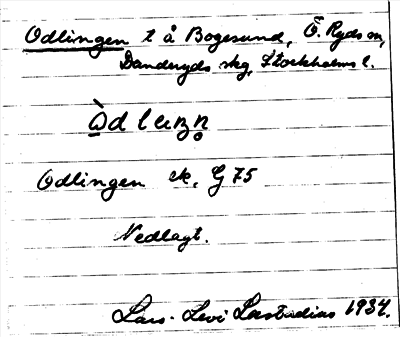 Odlingen t å Bogesund, Ö. Ryds sn,
Danderyds skg, Stockholms l.
Odlingen ek. G 75
Nedlagt.
Lars-Levi Læstadius 1934.